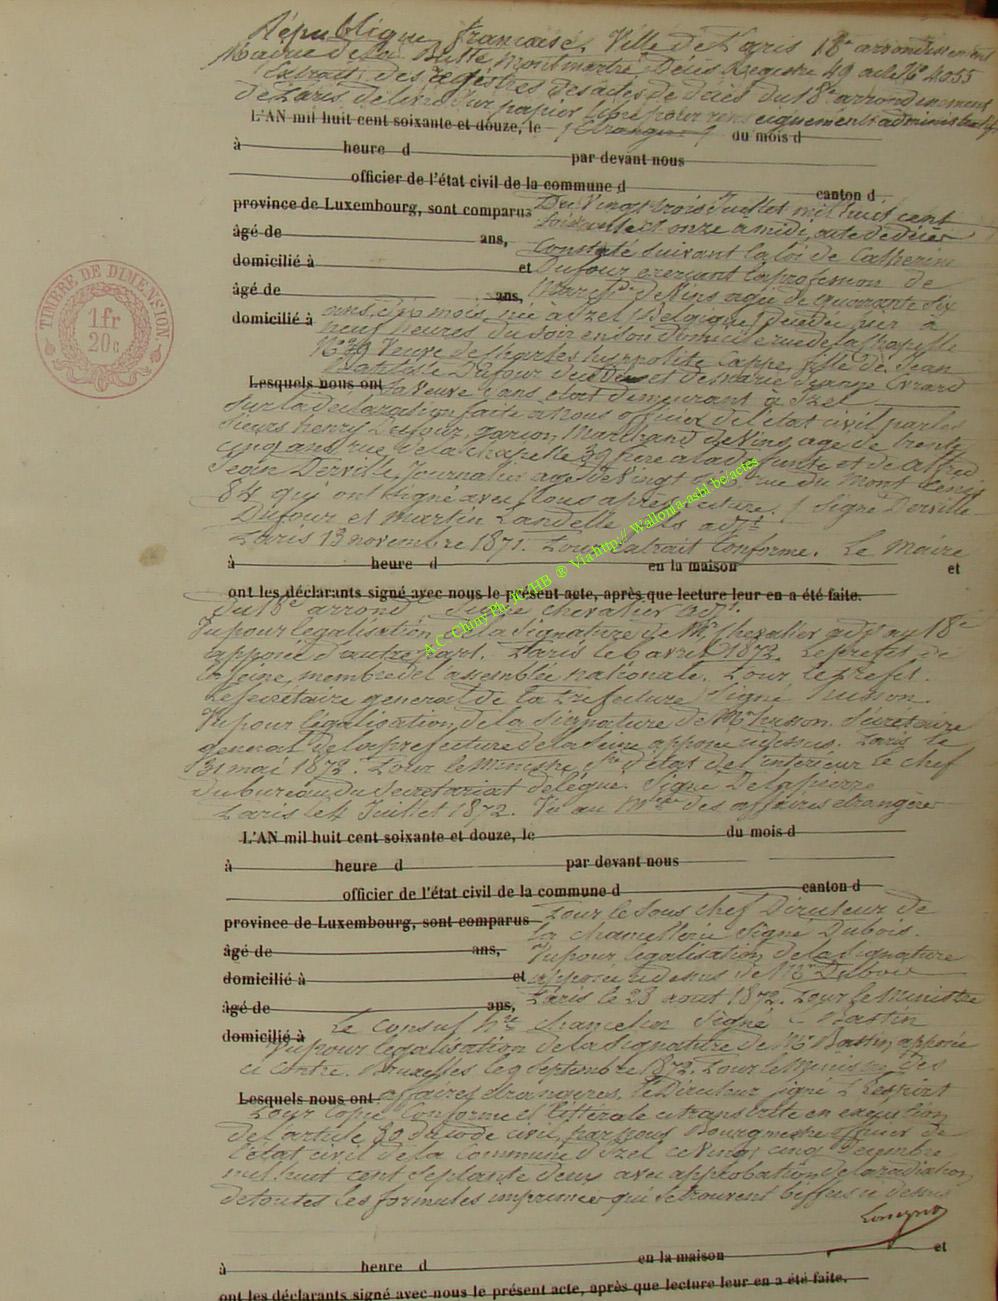 République française, Ville de Paris 18e arrondissement
Mairie de la Butte Montmartre Décès Registre 49 acte No 4055
Extrait des registres des actes de décès du 18e arrondissement
de Paris, délivré sur papier libre pour renseignements administratifs
L'AN mil huit cent soixante et douze, le du mois d
à heure d par devant nous
officier de l'état civil de la commune d canton d
province de Luxembourg, sont comparus Du Vingt trois Juillet mil huit cent
âgé de ans, soixante et onze à midi, acte de décès
domicilié à et Constaté suivant la loi de Catherine
Dufour exerçant la profession de
âgé de ans, Marchde de Vins agée de quarante six
domicilié à ans, mois, née à Izel (Belgique) décédée hier à
neuf heures du soir en son domicile rue de la Chapelle
No 39 Veuve de Charles hyppolite Cappe, fille de Jean
Dufour et de Marie Evrard
Lesquels nous ont sa Veuve sans état demeurant à Izel
Sur la déclaration faite à nous officier de l'état civil par les
sieurs henry Dufour, garçon Marchand de Vins, age de trente
cinq ans, rue de la Chapelle 39 frère à la défunte et de Alfred
Jean Derville Journalier age de Vingt ans, rue du Mont Cenis
84 qui ont signé avec Nous après lecture. / Signé Derville
Dufour et Martin Landelle adjt
Paris 13 novembre 1871. Pour extrait Conforme. Le Maire
à heure d en la maison et
ont les déclarants signé avec nous le présent acte, après que lecture leur en a été faite.
du 18e arrondt Signé Chevalier adjt.
Vu pour légalisation de la signature de Mr Chevalier adjt au 18e
apposée d'autre part. Paris le 6 avril 1872. Le prefet de
la Seine, membre de l'assemblée nationale. Pour le Prefet.
Le Secretaire general de la Prefecture, Signé husson.
Vu pour légalisation de la Signature de Mr husson. Secretaire
general de la prefecture de la Seine apposée ci dessus. Paris le
31 mai 1872. Pour le Ministre Sre d'état de l'intérieur Le chef
du bureau du Secretariat délégué. Signé Delapierre
Paris le 4 Juillet 1872. Vu au Mtère des affaires etrangères
L'AN mil huit cent soixante et douze, le du mois d
à heure d par devant nous
officier de l'état civil de la commune d canton d
province de Luxembourg, sont comparus Pour le Sous chef Directeur de
la chancellerie Signé Dubois.
âgé de ans, Vu pour légalisation de la signature
domicilié à et apposée ci dessus de Mr Dubois
âgé de ans, Paris le 23 aout 1872. Pour le Ministre
domicilié à Le Consul hre chancelier Signé Bastin
Vu pour légalisation de la signature de Mr Bastin, apposée
ci contre. Bruxelles le 9 Septembre 1872. Pour le Ministre des
Lesquels nous ont affaires etrangères, le Directeur signé
Pour Copie Conforme et littérale et transcrite en exécution
de l'article 80 du code civil, par nous Bourgmestre officier de
l'état civil de la Commune d'Izel ce vingt cinq Décembre
mil huit cent septante deux avec approbation de la radiation
de toutes les formules imprimées qui se trouvent biffées ci dessus
à heure d en la maison et
ont les déclarants signé avec nous le présent acte, après que lecture leur en a été faite.
TIMBRE DE DIMENSION.
1 fr
20 c
A C Chiny Ph. JC/HB ® Via:http:// Wallonia-asbl be/actes